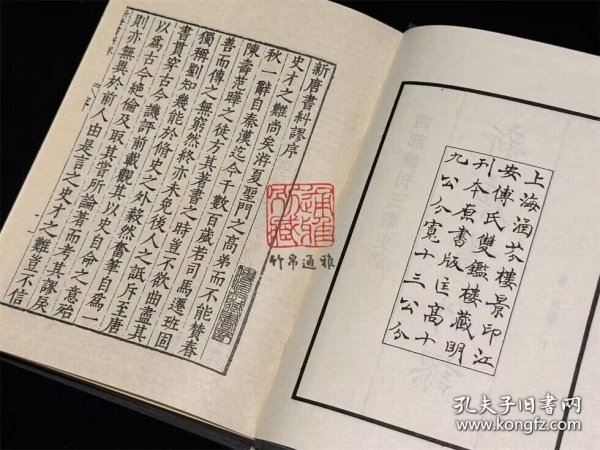 上海涵芬樓景印江
安傅氏雙鑑樓藏明
刊本原書版匡高十
九公分寬十三公分
新唐書糾謬序
史才之難尚矣游夏聖門之高弟而不能贊春
秋一辭自秦漢迄今千數百歲若司馬遷班固
陳壽范曄之徒方其著書之時豈不欲曲盡其
善而傳之無窮然終亦未免後人之詆斥至唐
獨稱劉知幾能於脩史之外毅然奮筆自為一
書貫穿古今譏評前載觀其以史自命之意殆
以為古今絕倫及取其嘗所論著而考其謬戾
則亦無異於前人由是言之史才之難豈不信
竹帛通雅
孔夫子旧书网
www.kongfz.com